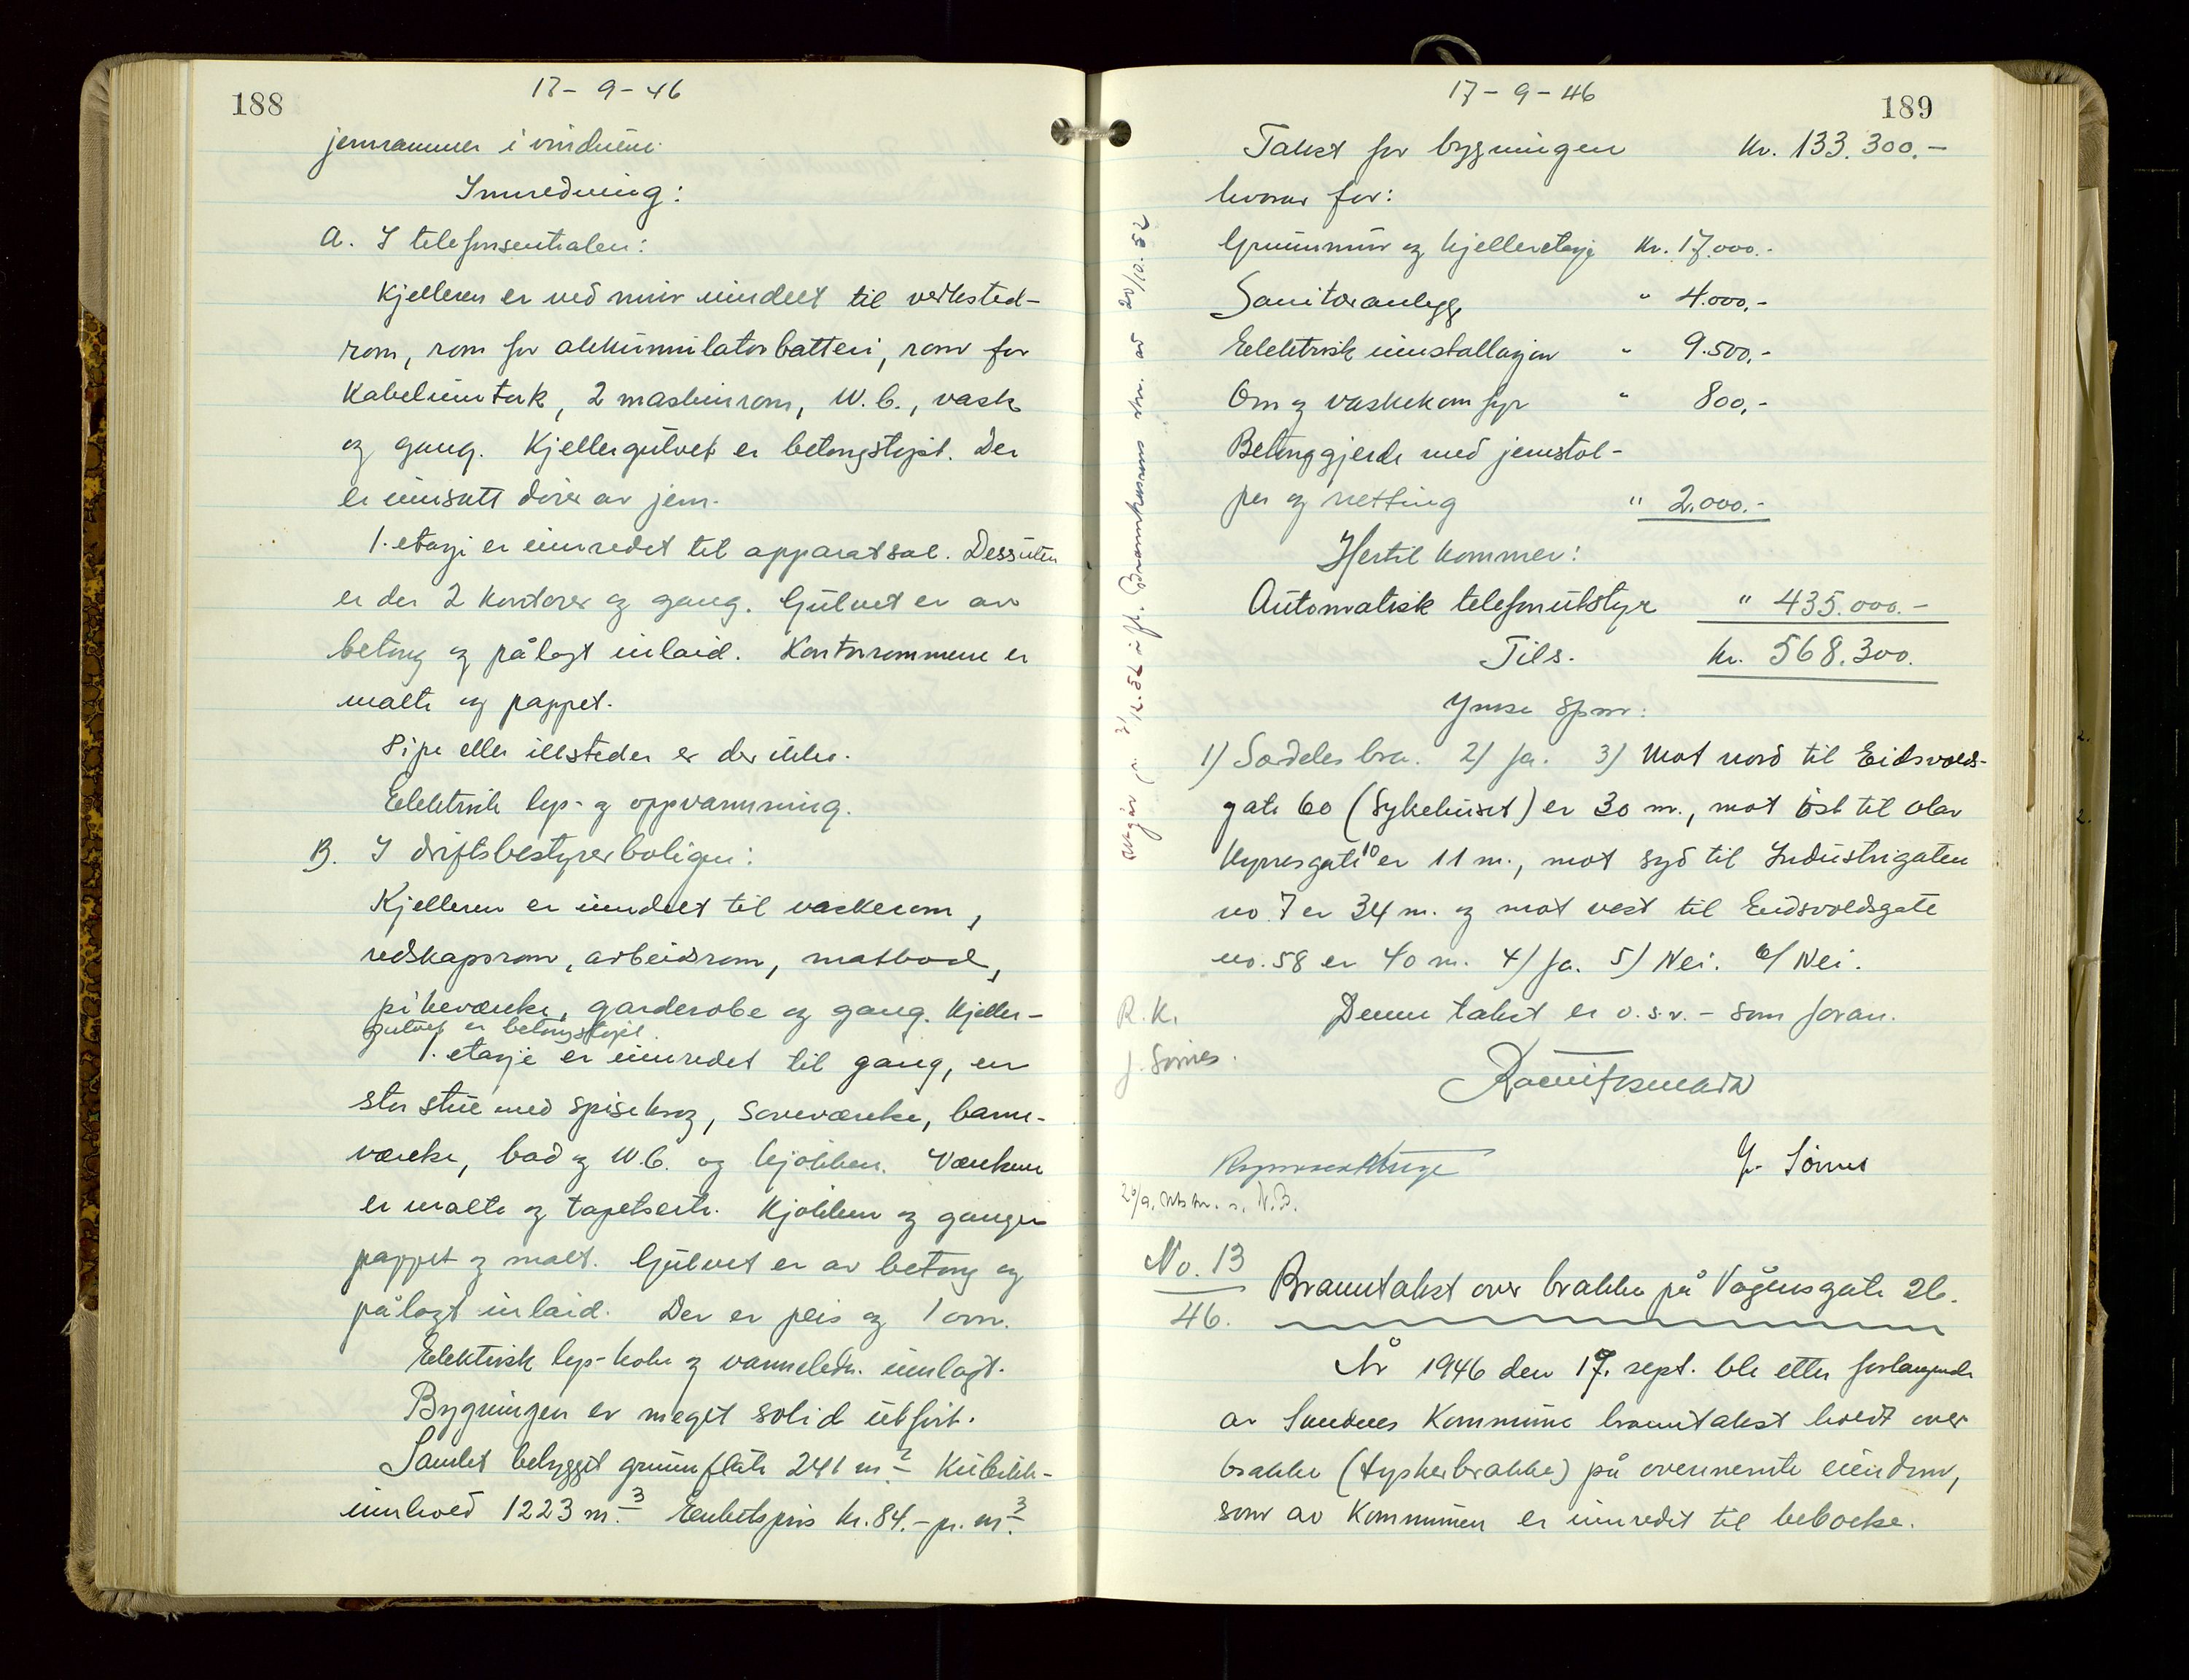 188
17-9-46
jernrammer i vinduene.
Innredning:
A. I telefonsentralen:
Kjelleren er ved mur inndelt til verksted-
rom, rom for akkumulatorbatteri, rom for
kabelinntak, 2 maskinrom, W.C., vask
og gang. Kjellergulvet er betongstøpt. Der
er innsatt dører av jern.
1. etasje er innredet til apparatsal. Dessuten
er der 2 kontorer og gang. Gulvet er av
betong og pålagt inlaid. Kontorrommene er
malte og pappet.
Pipe eller ildsteder er der ikke.
Elektrisk lys- og oppvarmning.
B. I driftsbestyrerboligen:
Kjelleren er inndelt til vaskerom,
redskapsrom, arbeidsrom, matbod,
pikeværelse, garderobe og gang. Kjeller-
gulvet er betongstøpt.
1. etasje er innredet til gang, en
stor stue med spisekrog, soveværelse, barne-
værelse, bad og W.C. og kjøkken. Værelsene
er malte og tapetserte. Kjøkken og ganger
pappet og malt. Gulvet er av betong og
pålagt inlaid. Der er peis og 1 ovn.
Elektrisk lys- koke og vannledn. innlagt.
Bygningen er meget solid utført.
Samlet bebygget grunnflate 241 m². Kubikk-
innhold 1223 m³. Enhetspris kr. 84.- pr. m³.
17-9-46
189
Takst for bygningen kr. 133.300.-
hvorav for:
Grunnmur og kjelleretasje kr. 17.000.-
Sanitæranlegg " 4.000,-
Elektrisk innstallasjon " 9.500,-
Ovn og vaskekomfyr " 800,-
Betonggjerde med jernstol-
per og netting " 2.000.-
Hertil kommer:
Automatisk telefonutstyr " 435.000.-
Tils. kr. 568.300.
Ymse spm:
1) Særdeles bra. 2) Ja. 3) Mot nord til Eidsvolds-
gate 60 (Sykehuset) er 30 m., mot øst til Olav
Kyrresgate 10 er 11 m., mot syd til Industrigaten
no. 7 er 34 m. og mot vest til Eidsvoldsgate
no. 58 er 40 m. 4) Ja. 5) Nei. 6) Nei.
Denne takst er o.s.v. - som foran.
R.K.
J. Sørnes.
J. Sørnes
No. 13
46.
Branntakst over brakke på Vågensgate 26.
År 1946 den 17. sept. ble etter forlangende
av Sandnes Kommune branntakst holdt over
brakke (tyskerbrakke) på ovennemte eiendom,
som av Kommunen er innredet til beboelse.